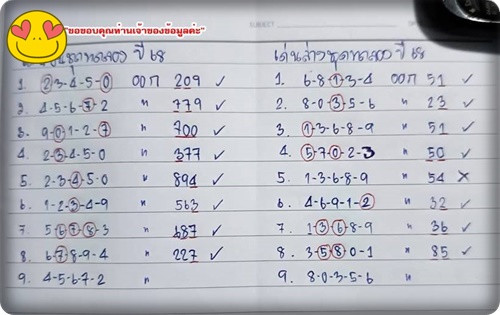 "ขอขอบคุณท่านเจ้าของข้อมูลค่ะ"
ปี 68
1. 2-3-4-5-0 ออก 209 ✓
2. 4-5-6-7-2 " 779 ✓
3. 9-0-1-2-7 " 700 ✓
4. 2-3-4-5-0 " 377 ✓
5. 2-3-4-5-0 " 894 ✓
6. 1-2-3-4-9 " 563 ✓
7. 5-6-7-8-3 " 687 ✓
8. 6-7-8-9-4 " 227 ✓
9. 4-5-6-7-2 "
เด่นล่างชุดทดลอง ปี 68
1. 6-8-1-3-4 ออก 51 ✓
2. 8-0-3-5-6 " 23 ✓
3. 1-3-6-8-9 " 51 ✓
4. 5-7-0-2-3 " 50 ✓
5. 1-3-6-8-9 " 54 ✗
6. 4-6-9-1-2 " 32 ✓
7. 1-3-6-8-9 " 36 ✓
8. 3-5-8-0-1 " 85 ✓
9. 8-0-3-5-6 "